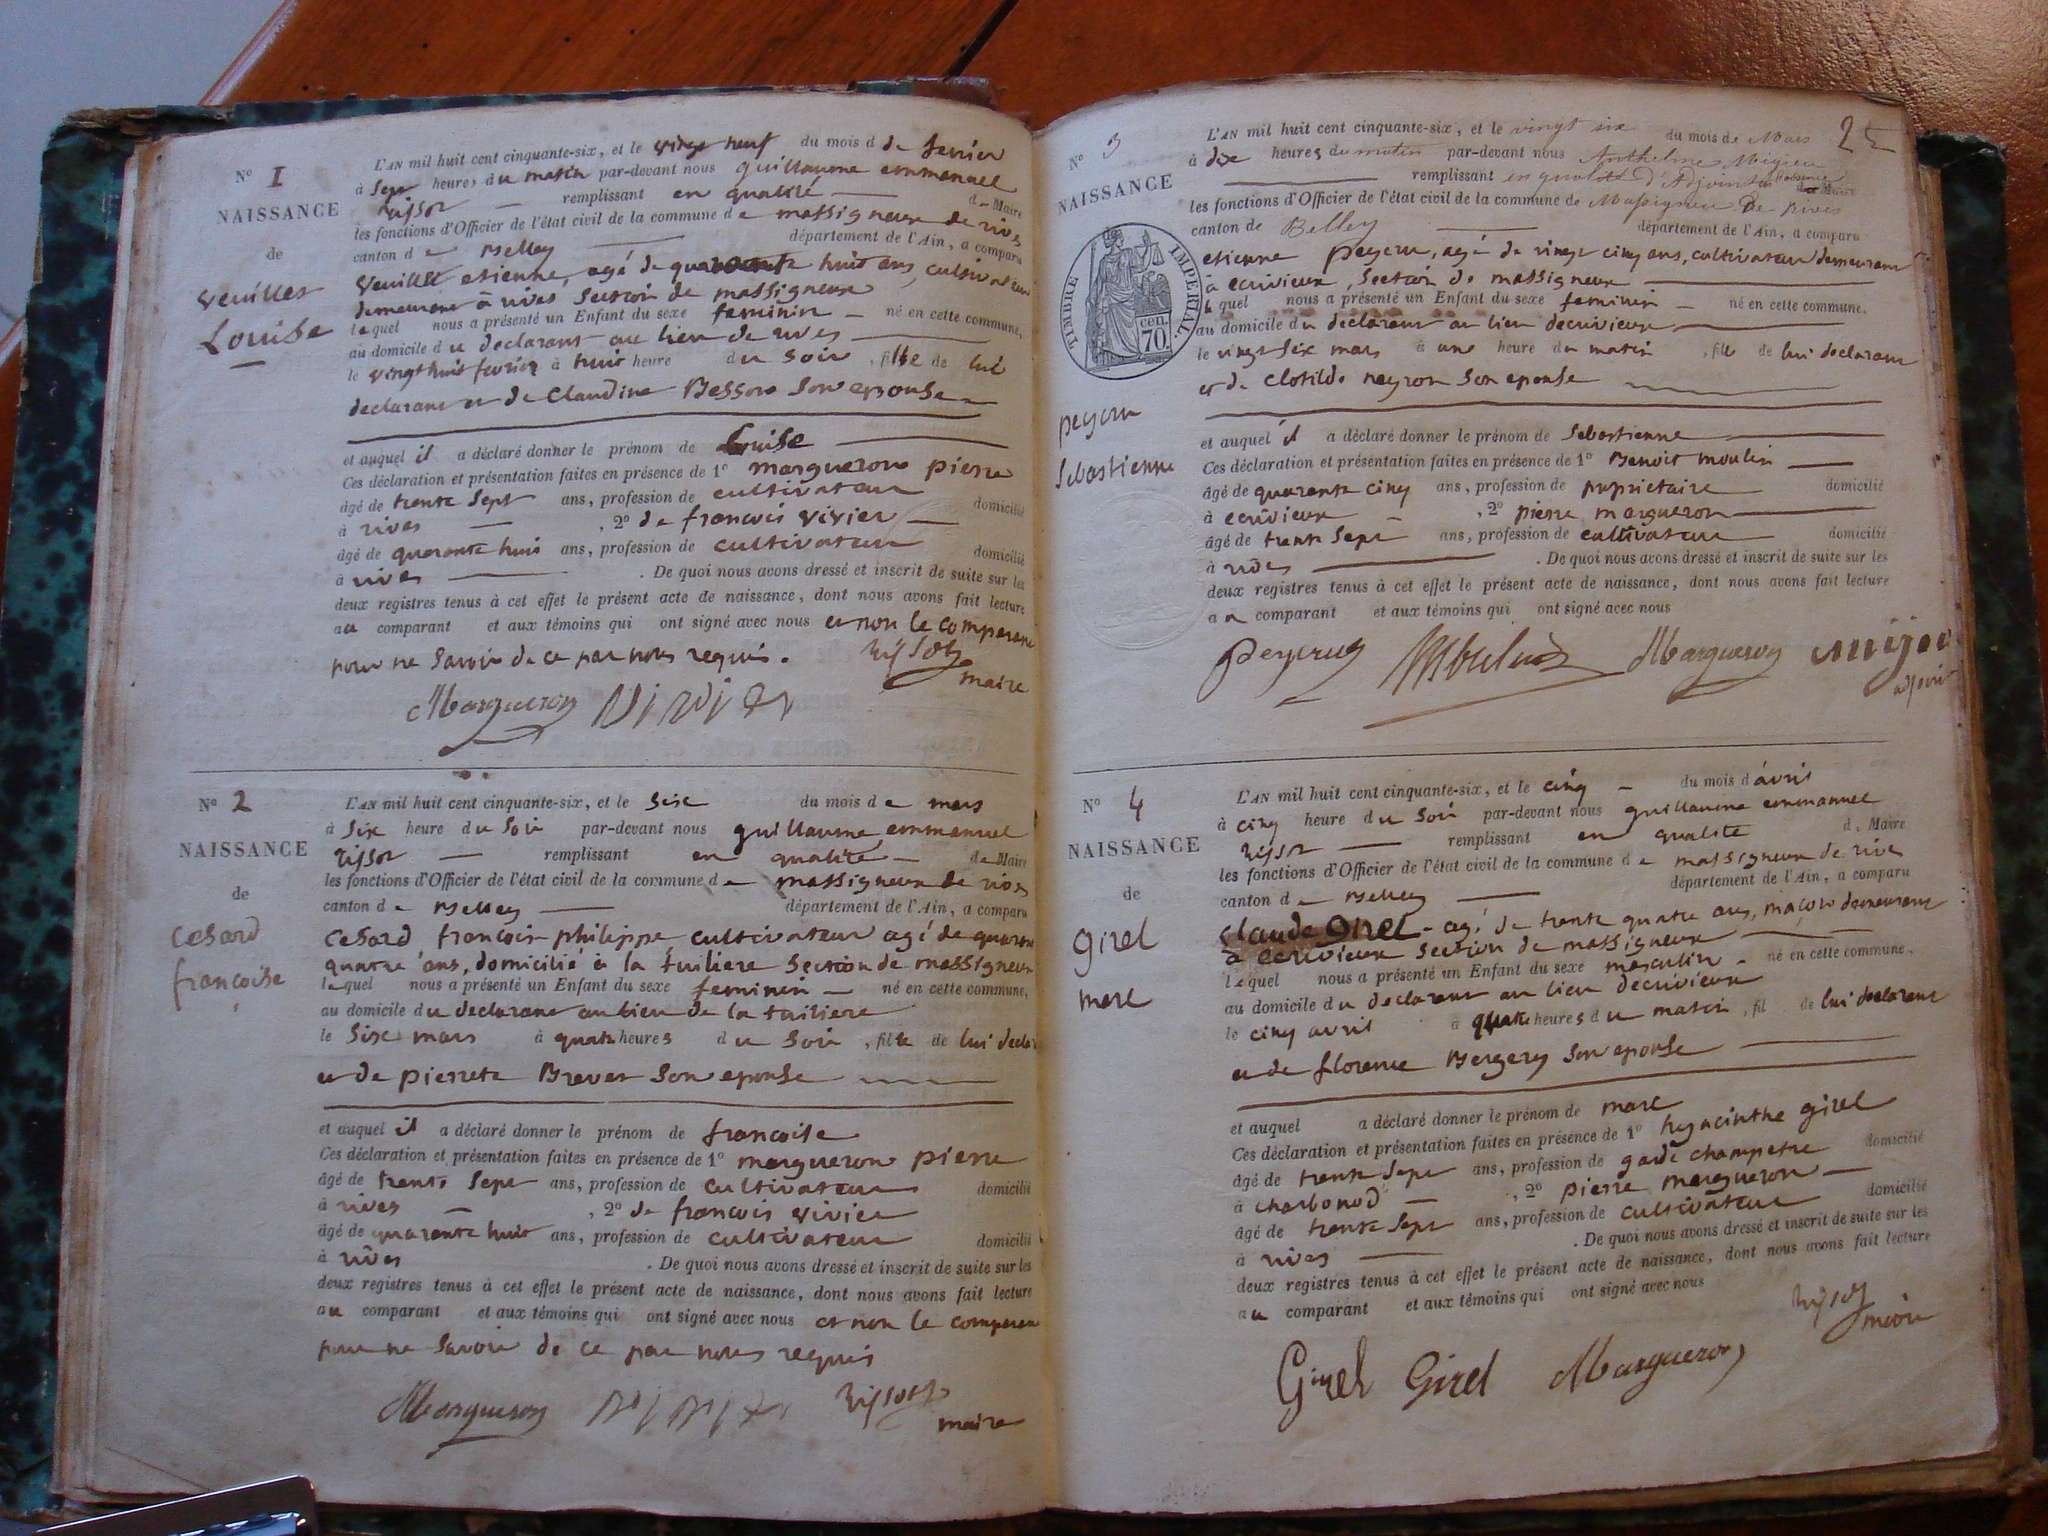 N° 1
NAISSANCE
de
veuillet
Louise
L'AN mil huit cent cinquante-six, et le vingt neuf du mois d de fevrier
à sept heures du matin par-devant nous guillaume emmanuel
rissot remplissant en qualité de Maire
les fonctions d'Officier de l'état civil de la commune de massigneux de rives
canton de Belley département de l'Ain, a comparu
veuillet etienne, agé de quarante huit ans, cultivateur
demeurant à rives section de massigneux
lequel nous a présenté un Enfant du sexe feminin né en cette commune,
au domicile du declarant au lieu de rives
le vingt huit fevrier à huit heure du soir, fille de lui
declarant et de Claudine Besson son epouse
et auquel il a déclaré donner le prénom de Louise
Ces déclaration et présentation faites en présence de 1° margueron pierre
âgé de trente sept ans, profession de cultivateur domicilié
à rives, 2° de francois vivier
âgé de quarante huit ans, profession de cultivateur domicilié
à rives. De quoi nous avons dressé et inscrit de suite sur les
deux registres tenus à cet effet le présent acte de naissance, dont nous avons fait lecture
au comparant et aux témoins qui ont signé avec nous et non le comparant
pour ne savoir de ce par nous requis. rissot
maire
Margueron Vivier
N° 2
NAISSANCE
de
Cesard
francoise
L'AN mil huit cent cinquante-six, et le six du mois de mars
à six heure du soir par-devant nous guillaume emmanuel
rissot remplissant en qualité de Maire
les fonctions d'Officier de l'état civil de la commune de massigneux de rives
canton de Belley département de l'Ain, a comparu
Cesard francois philippe cultivateur agé de quarante
quatre ans, domicilié à la tuiliere section de massigneux
lequel nous a présenté un Enfant du sexe feminin né en cette commune,
au domicile du declarant au lieu de la tuiliere
le six mars à quatre heures du soir, fille de lui declar
et de pierrete Brevet son epouse
et auquel il a déclaré donner le prénom de francoise
Ces déclaration et présentation faites en présence de 1° margueron pierre
âgé de trente sept ans, profession de cultivateur domicilié
à rives, 2° de francois vivier
âgé de quarante huit ans, profession de cultivateur domicilié
à rives. De quoi nous avons dressé et inscrit de suite sur les
deux registres tenus à cet effet le présent acte de naissance, dont nous avons fait lecture
au comparant et aux témoins qui ont signé avec nous et non le comparant
pour ne savoir de ce par nous requis
Margueron Vivier rissot
maire
2
N° 3
NAISSANCE
TIMBRE IMPERIAL
70 cen.
peyson
Sebastienne
L'AN mil huit cent cinquante-six, et le vingt six du mois de Mars
à dix heures du matin par-devant nous Anthelme Migieu
remplissant en qualité d'Adjoint de Maire
les fonctions d'Officier de l'état civil de la commune de Massigneu De Rives
canton de Belley département de l'Ain, a comparu
etienne , agé de vingt cinq ans, cultivateur demeurant
à ecrivieux, section de massigneux
lequel nous a présenté un Enfant du sexe feminin né en cette commune.
au domicile du declarant au lieu decrivieux
le vingt six mars à une heure du matin, fille de lui declarant
et de Clotilde neyron son epouse
et auquel il a déclaré donner le prénom de Sebastienne
Ces déclaration et présentation faites en présence de 1° Benoit moulin
âgé de quarante cinq ans, profession de propriétaire domicilié
à ecrivieux, 2° pierre margueron
âgé de trente sept ans, profession de cultivateur domicilié
à rives. De quoi nous avons dressé et inscrit de suite sur les
deux registres tenus à cet effet le présent acte de naissance, dont nous avons fait lecture
au comparant et aux témoins qui ont signé avec nous
Margueron
adjoint
N° 4
NAISSANCE
de
Girel
marc
L'AN mil huit cent cinquante-six, et le cinq du mois d'avril
à cinq heure du soir par-devant nous guillaume emmanuel
rissot remplissant en qualité de Maire
les fonctions d'Officier de l'état civil de la commune de massigneux de rives
canton de Belley département de l'Ain, a comparu
claude Girel agé de trente quatre ans, maçon demeurant
à ecrivieux section de massigneux
lequel nous a présenté un Enfant du sexe masculin né en cette commune,
au domicile du declarant au lieu decrivieux
le cinq avril à quatre heures du matin, fil de lui declarant
et de florence Bergery son epouse
et auquel a déclaré donner le prénom de marc
Ces déclaration et présentation faites en présence de 1° hyacinthe girel
âgé de trente sept ans, profession de garde champetre domicilié
à charbonod, 2° pierre margueron
âgé de trente sept ans, profession de cultivateur domicilié
à rives. De quoi nous avons dressé et inscrit de suite sur les
deux registres tenus à cet effet le présent acte de naissance, dont nous avons fait lecture
au comparant et aux témoins qui ont signé avec nous
rissot
maire
Girel Girel Margueron